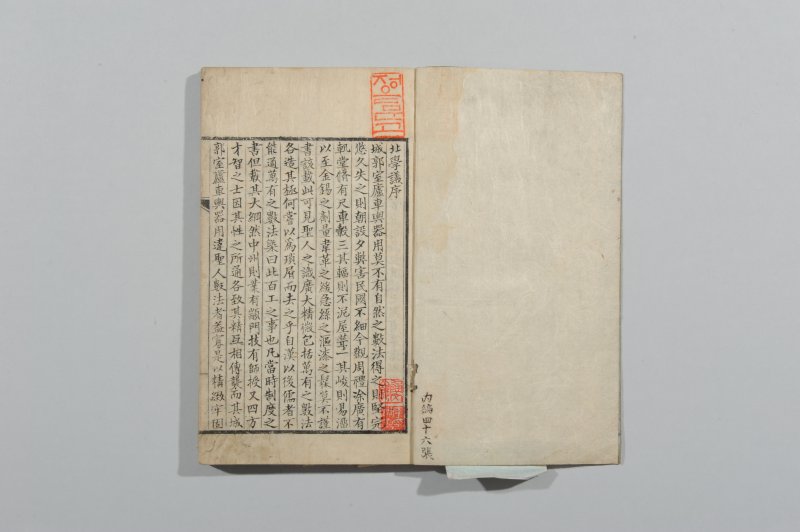 北學議序
城郭室廬車輿器用莫不有自然之數法得之則堅完
悠久失之則朝設夕弊害民國不細今觀周禮涂廣有
軌堂脩有尺車轂三其輻則不泥屋葺一其峻則易溜
以至金錫之劑量韋革之緩急絲之漚漆之髹莫不謹
書該載此可見聖人之識廣大精微包括萬有之數法
各造其極何嘗以爲瑣屑而去之乎自漢以後儒者不
能通萬有之數法槩曰此百工之事也凡當時制度之
書但載其大綱然中州則業有顓門技有師授又四方
才智之士因其性之所通各致其精互相傳襲而其城
郭室廬車輿器用違聖人數法者盖寡是以精緻牢固
內編四十六張